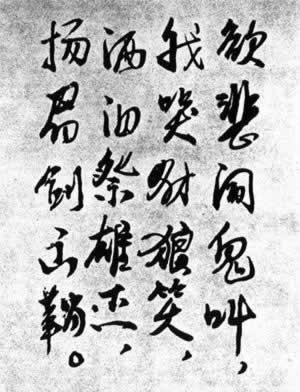 欲悲闻鬼叫,
我哭豺狼笑,
洒泪祭雄杰,
扬眉剑出鞘。